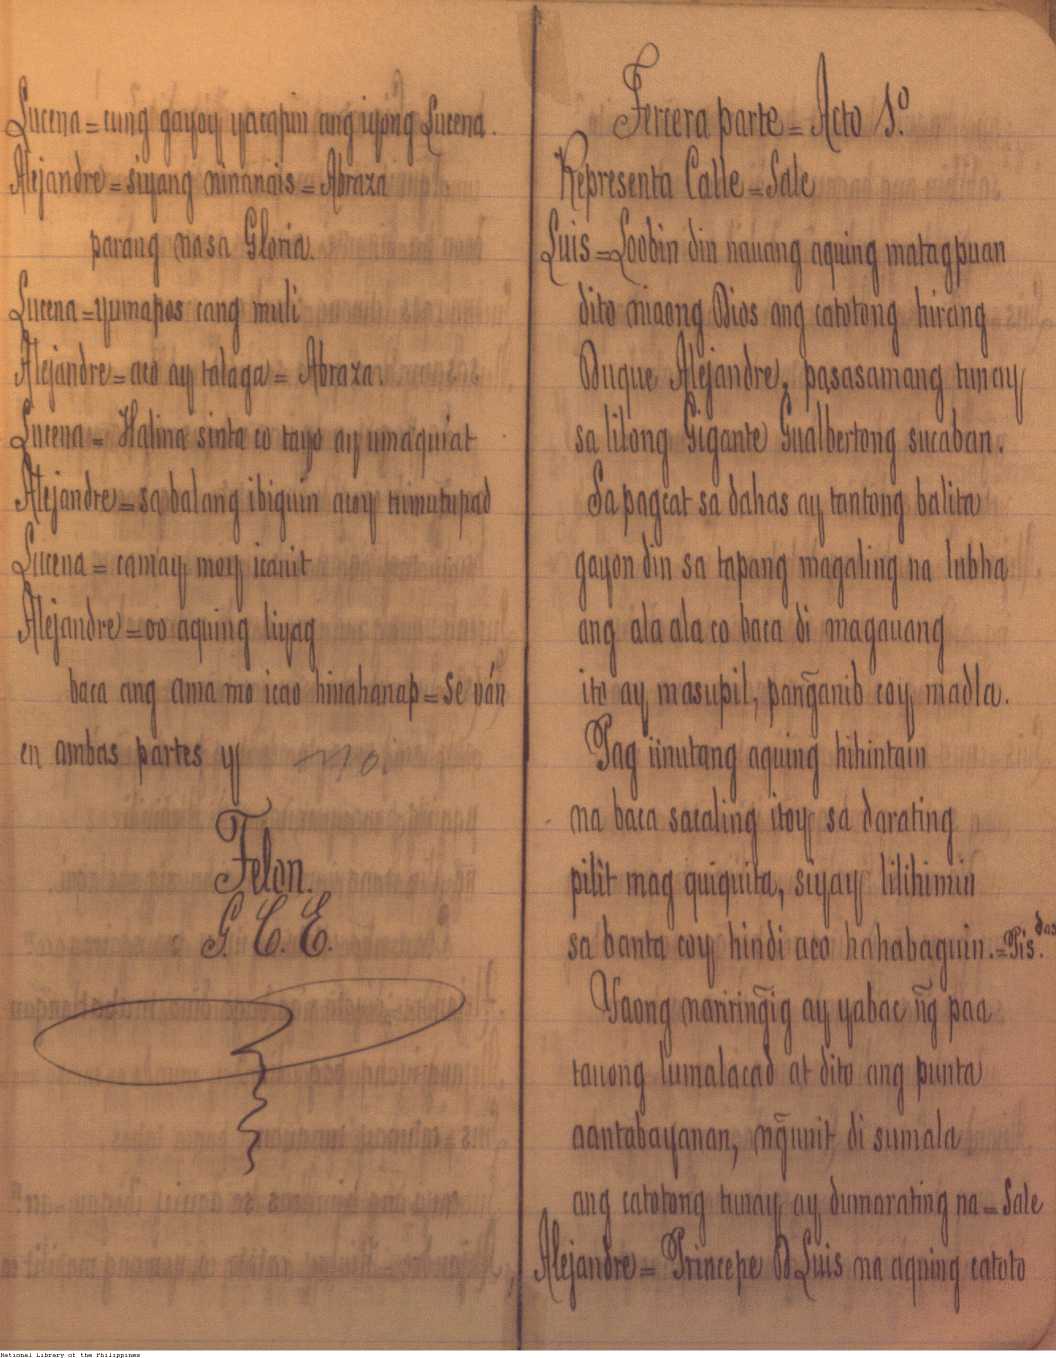 Lucena = cung gayoy yacapin ang iyong Lucena.
Alejandre = siyang ninanais = Abraza
parang nasa Gloria.
Lucena = yumapos cang muli
Alejandre = aco ay talaga = Abraza.
Lucena = Halina sinta co tayo ay umaquiat
Alejandre = sa balang ibiguin acoy tumutupad
Lucena = camay moy icauit
Alejandre = oo aquing liyag
baca ang ama mo icao hinahanap = Se ván
en ambas partes y
Telon.
G. C. E.
Tercera parte = Acto 1º
Representa Calle = Sale
Luis = Loobin din nauang aquing matagpuan
dito niaong Dios ang catotong hirang
Duque Alejandre, pasasamang tunay
sa lilong Gigante Gualbertong sucaban.
Sa pagcat sa dahas ay tantong balita
gayon din sa tapang magaling na lubha
ang ala ala co baca di magauang
ito ay masupil, pang̃anib coy madla.
Pag iinutang aquing hihintain
na baca sacaling itoy sa darating
pilit mag quiquita, siyay lilihimin
sa banta coy hindi aco hahabaguin. = Pis.das
Yaong naririn͠gig ay yabac n͠g paa
tauong lumalacad at dito ang punta
aantabayanan, n͠gunit di sumala
ang catotong tunay ay dumarating na = Sale
Alejandre = Principe D Luis na aquing catoto
National Library of the Philippines